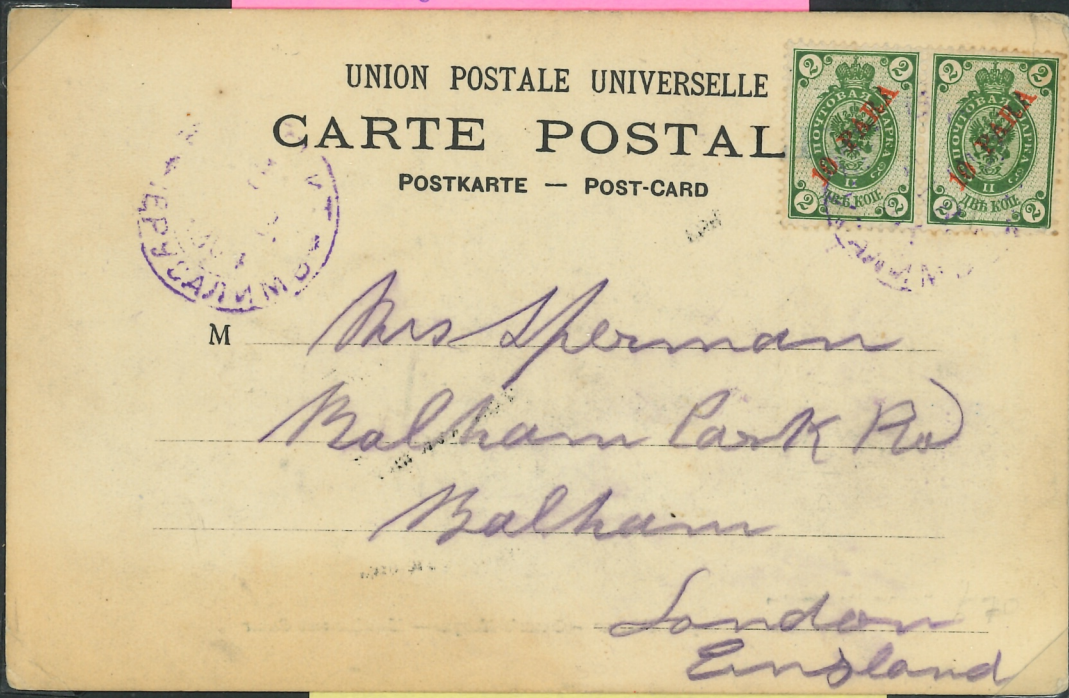 UNION POSTALE UNIVERSELLE
CARTE POSTAL
POSTKARTE — POST-CARD
2 2
ПОЧТОВАЯ МАРКА
10 PARA
ДВѢ КОП.
2 2
2 2
ПОЧТОВАЯ МАРКА
10 PARA
ДВѢ КОП.
2 2
ІЕРУСАЛИМЪ
M Mrs Sperman
Balham Park Rd
Balham
London
England